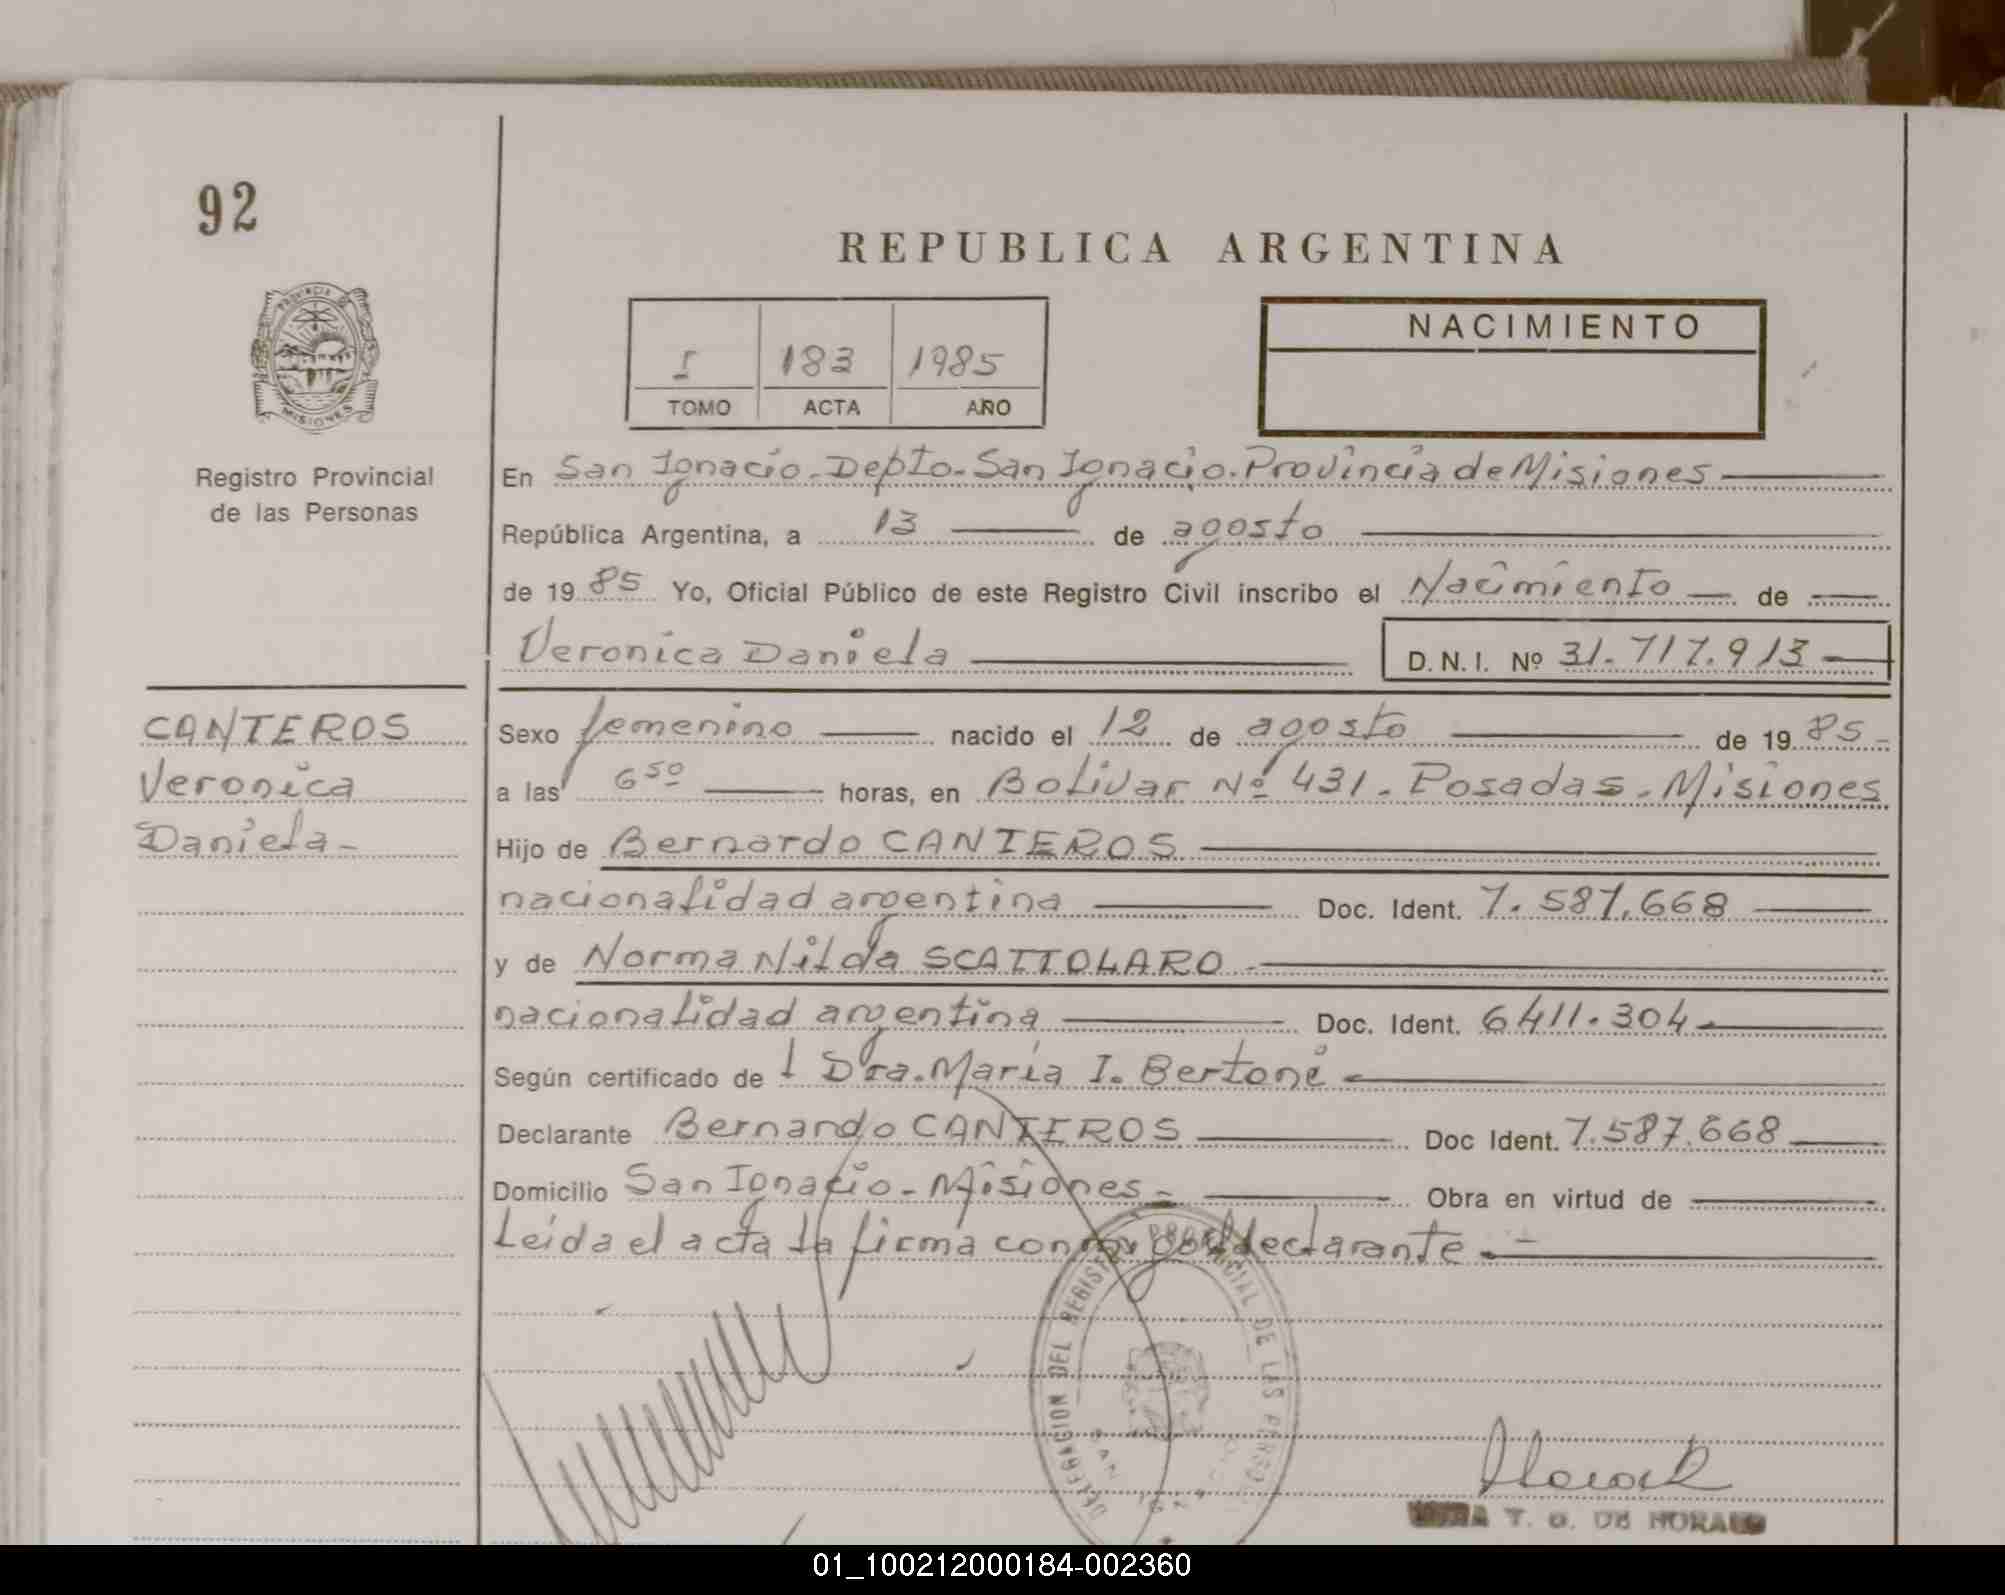 92
REPUBLICA ARGENTINA
PROVINCIA DE
MISIONES
Registro Provincial
de las Personas
I 183 1985
TOMO ACTA AÑO
NACIMIENTO
En San Ignacio - Depto - San Ignacio. Provincia de Misiones
República Argentina, a 13 de agosto
de 19 85 Yo, Oficial Público de este Registro Civil inscribo el Nacimiento de
Veronica Daniela D.N.I. Nº 31.717.913
CANTEROS
Veronica
Daniela-
Sexo femenino nacido el 12 de agosto de 19 85
a las 6 50 horas, en Bolivar Nº 431. Posadas - Misiones
Hijo de Bernardo CANTEROS
nacionalidad argentina Doc. Ident. 7.587.668
y de Norma Nilda SCATTOLARO
nacionalidad argentina Doc. Ident. 6411.304
Según certificado de Dra. María I. Bertoni
Declarante Bernardo CANTEROS Doc Ident. 7.587.668
Domicilio San Ignacio - Misiones - Obra en virtud de
Leída el acta la firma conmigo el declarante.-
DELEGACION DEL REGISTRO PROVINCIAL DE LAS PERSONAS
SAN
T. G. DE MORALES
01_100212000184-002360